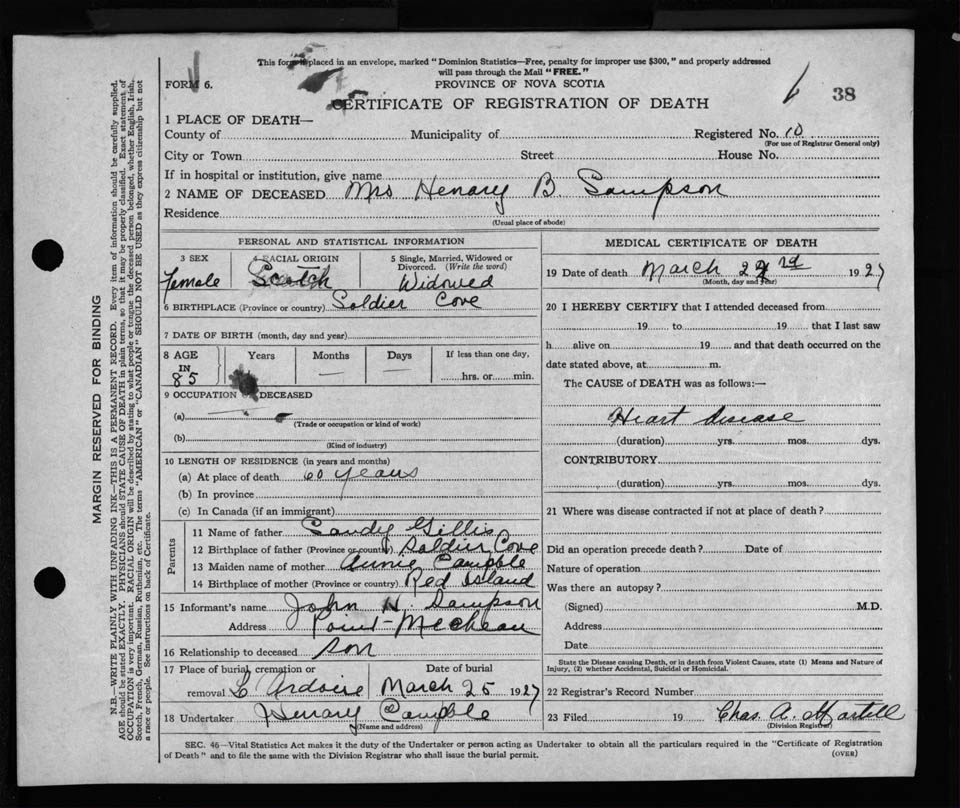 This form is placed in an envelope, marked "Dominion Statistics—Free, penalty for improper use $300," and properly addressed
will pass through the Mail "FREE."
FORM 6.
PROVINCE OF NOVA SCOTIA
CERTIFICATE OF REGISTRATION OF DEATH
38
1 PLACE OF DEATH—
County of Municipality of Registered No. 10
(For use of Registrar General only)
City or Town Street House No.
If in hospital or institution, give name
2 NAME OF DECEASED Mrs Henary B Sampson
Residence
(Usual place of abode)
PERSONAL AND STATISTICAL INFORMATION
3 SEX 4 RACIAL ORIGIN 5 Single, Married, Widowed or Divorced. (Write the word)
Female Scotch Widowed
6 BIRTHPLACE (Province or country) Soldier Cove
7 DATE OF BIRTH (month, day and year)
8 AGE IN Years Months Days If less than one day,
85 — — hrs. or min.
9 OCCUPATION OF DECEASED
(a)
(Trade or occupation or kind of work)
(b)
(Kind of industry)
10 LENGTH OF RESIDENCE (in years and months)
(a) At place of death 60 years
(b) In province
(c) In Canada (if an immigrant)
Parents
11 Name of father Sandy Gillis
12 Birthplace of father (Province or country) Soldier Cove
13 Maiden name of mother Annie Campble
14 Birthplace of mother (Province or country) Red Island
15 Informant's name John H. Sampson
Address Point-Mecheau
16 Relationship to deceased son
17 Place of burial, cremation or Date of burial
removal L Ardoise March 25 1927
18 Undertaker Henary Campble
(Name and address)
MEDICAL CERTIFICATE OF DEATH
19 Date of death March 1927
(Month, day and year)
20 I HEREBY CERTIFY that I attended deceased from
19 to 19 that I last saw
h alive on 19 and that death occurred on the
date stated above, at m.
The CAUSE of DEATH was as follows:—
Heart disease
(duration) yrs. mos. dys.
CONTRIBUTORY
(duration) yrs. mos. dys.
21 Where was disease contracted if not at place of death?
Did an operation precede death? Date of
Nature of operation
Was there an autopsy?
(Signed) M.D.
Address
Date
State the Disease causing Death, or in death from Violent Causes, state (1) Means and Nature of
Injury, (2) whether Accidental, Suicidal or Homicidal.
22 Registrar's Record Number
23 Filed 19 Chas. A. Martell
(Division Registrar)
SEC. 46—Vital Statistics Act makes it the duty of the Undertaker or person acting as Undertaker to obtain all the particulars required in the "Certificate of Registration
of Death" and to file the same with the Division Registrar who shall issue the burial permit.
(OVER)
MARGIN RESERVED FOR BINDING
N.B.—WRITE PLAINLY WITH UNFADING INK—THIS IS A PERMANENT RECORD. Every item of information should be carefully supplied.
AGE should be stated EXACTLY. PHYSICIANS should STATE CAUSE OF DEATH in plain terms, so that it may be properly classified. Exact statement of
OCCUPATION is very important. RACIAL ORIGIN will be described by stating to what people or tongue the deceased person belonged, whether English, Irish,
Scotch, French, German, Russian, Ruthenian, etc. The terms "AMERICAN" or "CANADIAN" SHOULD NOT BE USED as they express citizenship but not
a race or people. See instructions on back of Certificate.